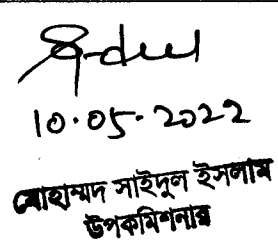 10.05.2022
মোহাম্মদ সাইদুল ইসলাম
উপকমিশনার